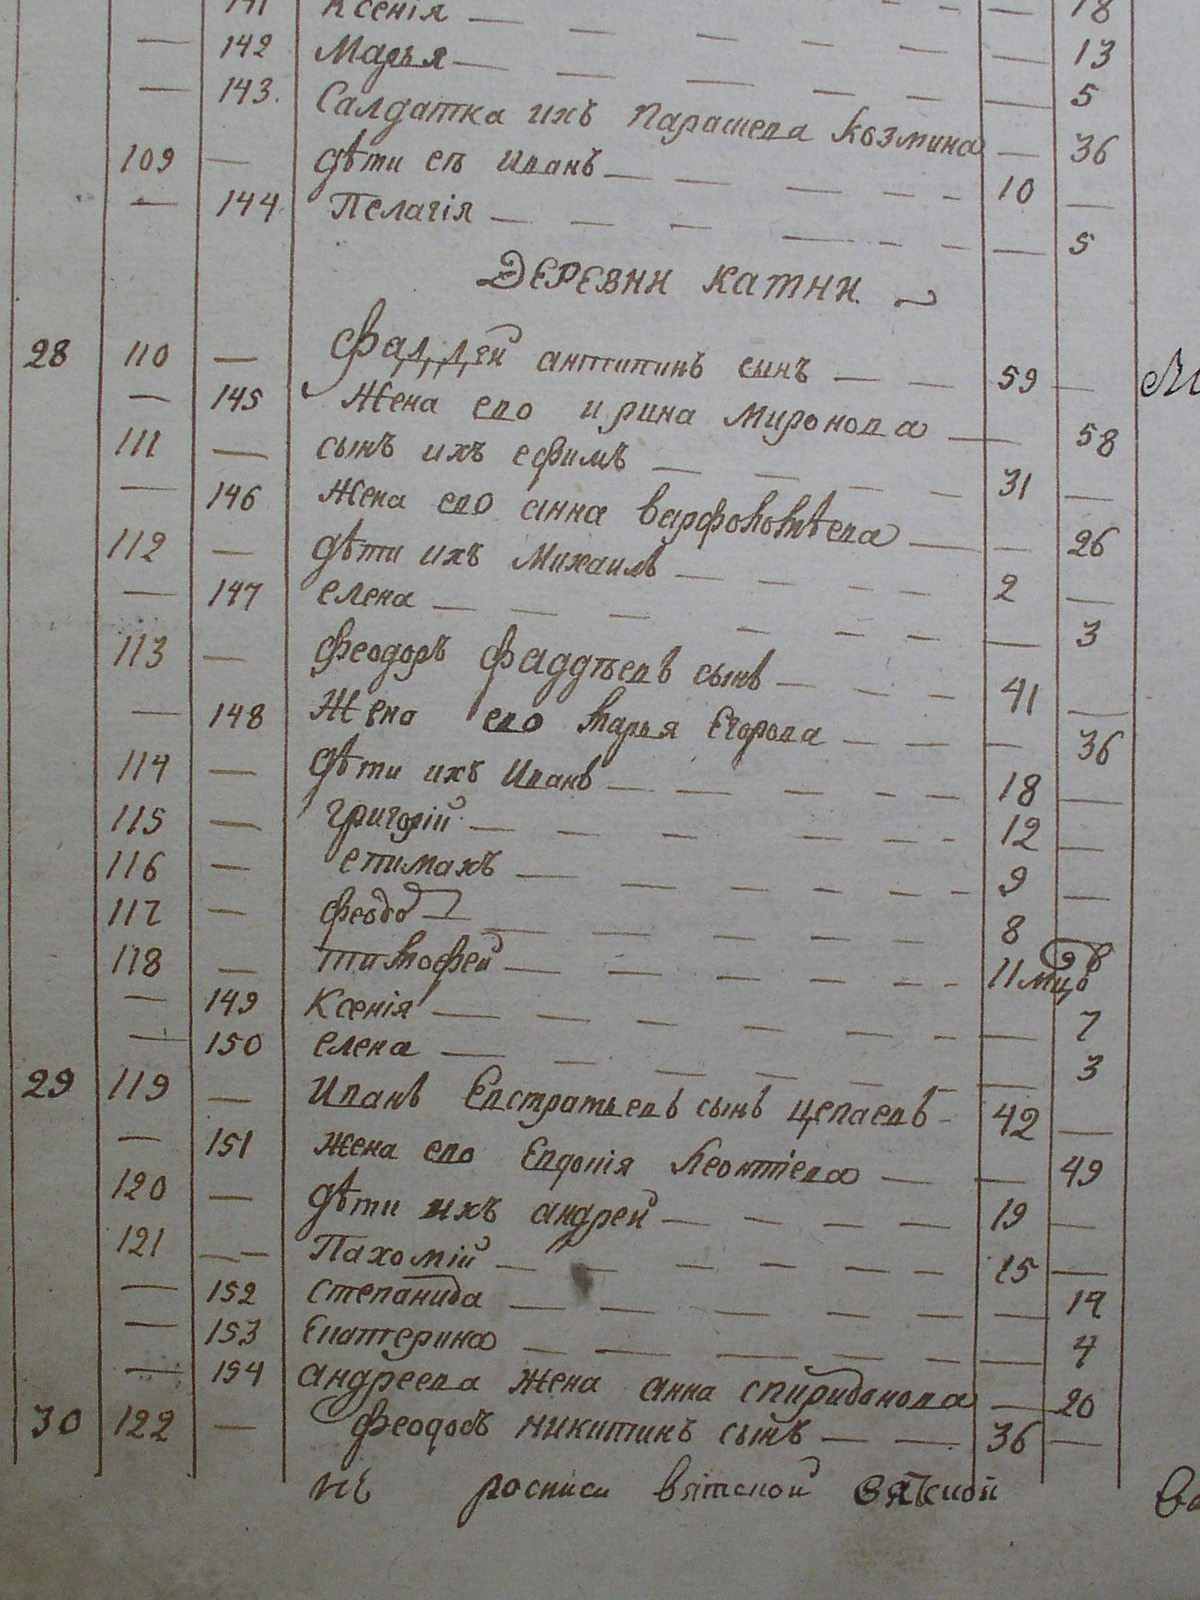 141 Ксенія — 18
— 142 Марья — 13
— 143 5
Салдатка ихъ Парасцева Козмина — 36
109 — дѣти ея Иванъ — 10 —
— 144 Пелагія — 5
Деревни Катни
28 110 — Фаддей антипинъ сынъ — 59 —
— 145 Жена ево ирина Миронова — 58
111 — сынъ ихъ ефимъ — 31 —
— 146 Жена ево анна варфоломѣева — 26
112 — дѣти ихъ Михаилъ — 2 —
— 147 елена — 3
113 — Феодоръ Фаддѣевъ сынъ — 41 —
— 148 Жена ево Марья Егорова — 36
114 — дѣти ихъ Иванъ — 18 —
115 — григорій — 12 —
116 — епимахъ — 9 —
117 — Феодо — 8
118 — тимофей — 11 мцовъ
— 149 Ксенія — 7
— 150 елена — 3
29 119 — Иванъ Евстратьевъ сынъ Цепаевъ — 42 —
— 151 жена ево Евдокія Леонтіева — 49
120 — дѣти ихъ андрей — 19 —
121 — Пахомій — 15 —
— 152 степанида — 19
— 153 Екатерина — 4
— 154 андреева жена анна спиридонова — 20
30 122 — Феодоръ никитинъ сынъ — 36 —
къ росписи вятской